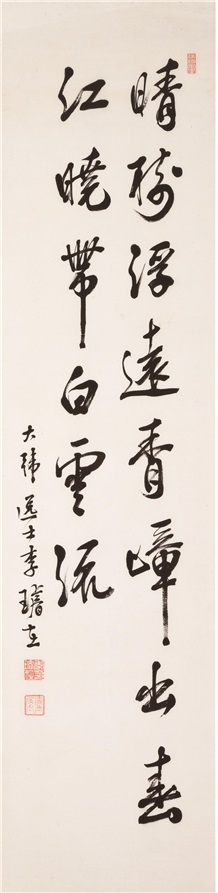 晴樹浮遠青嶂出春
江曉帶白雲流
大韓士李在